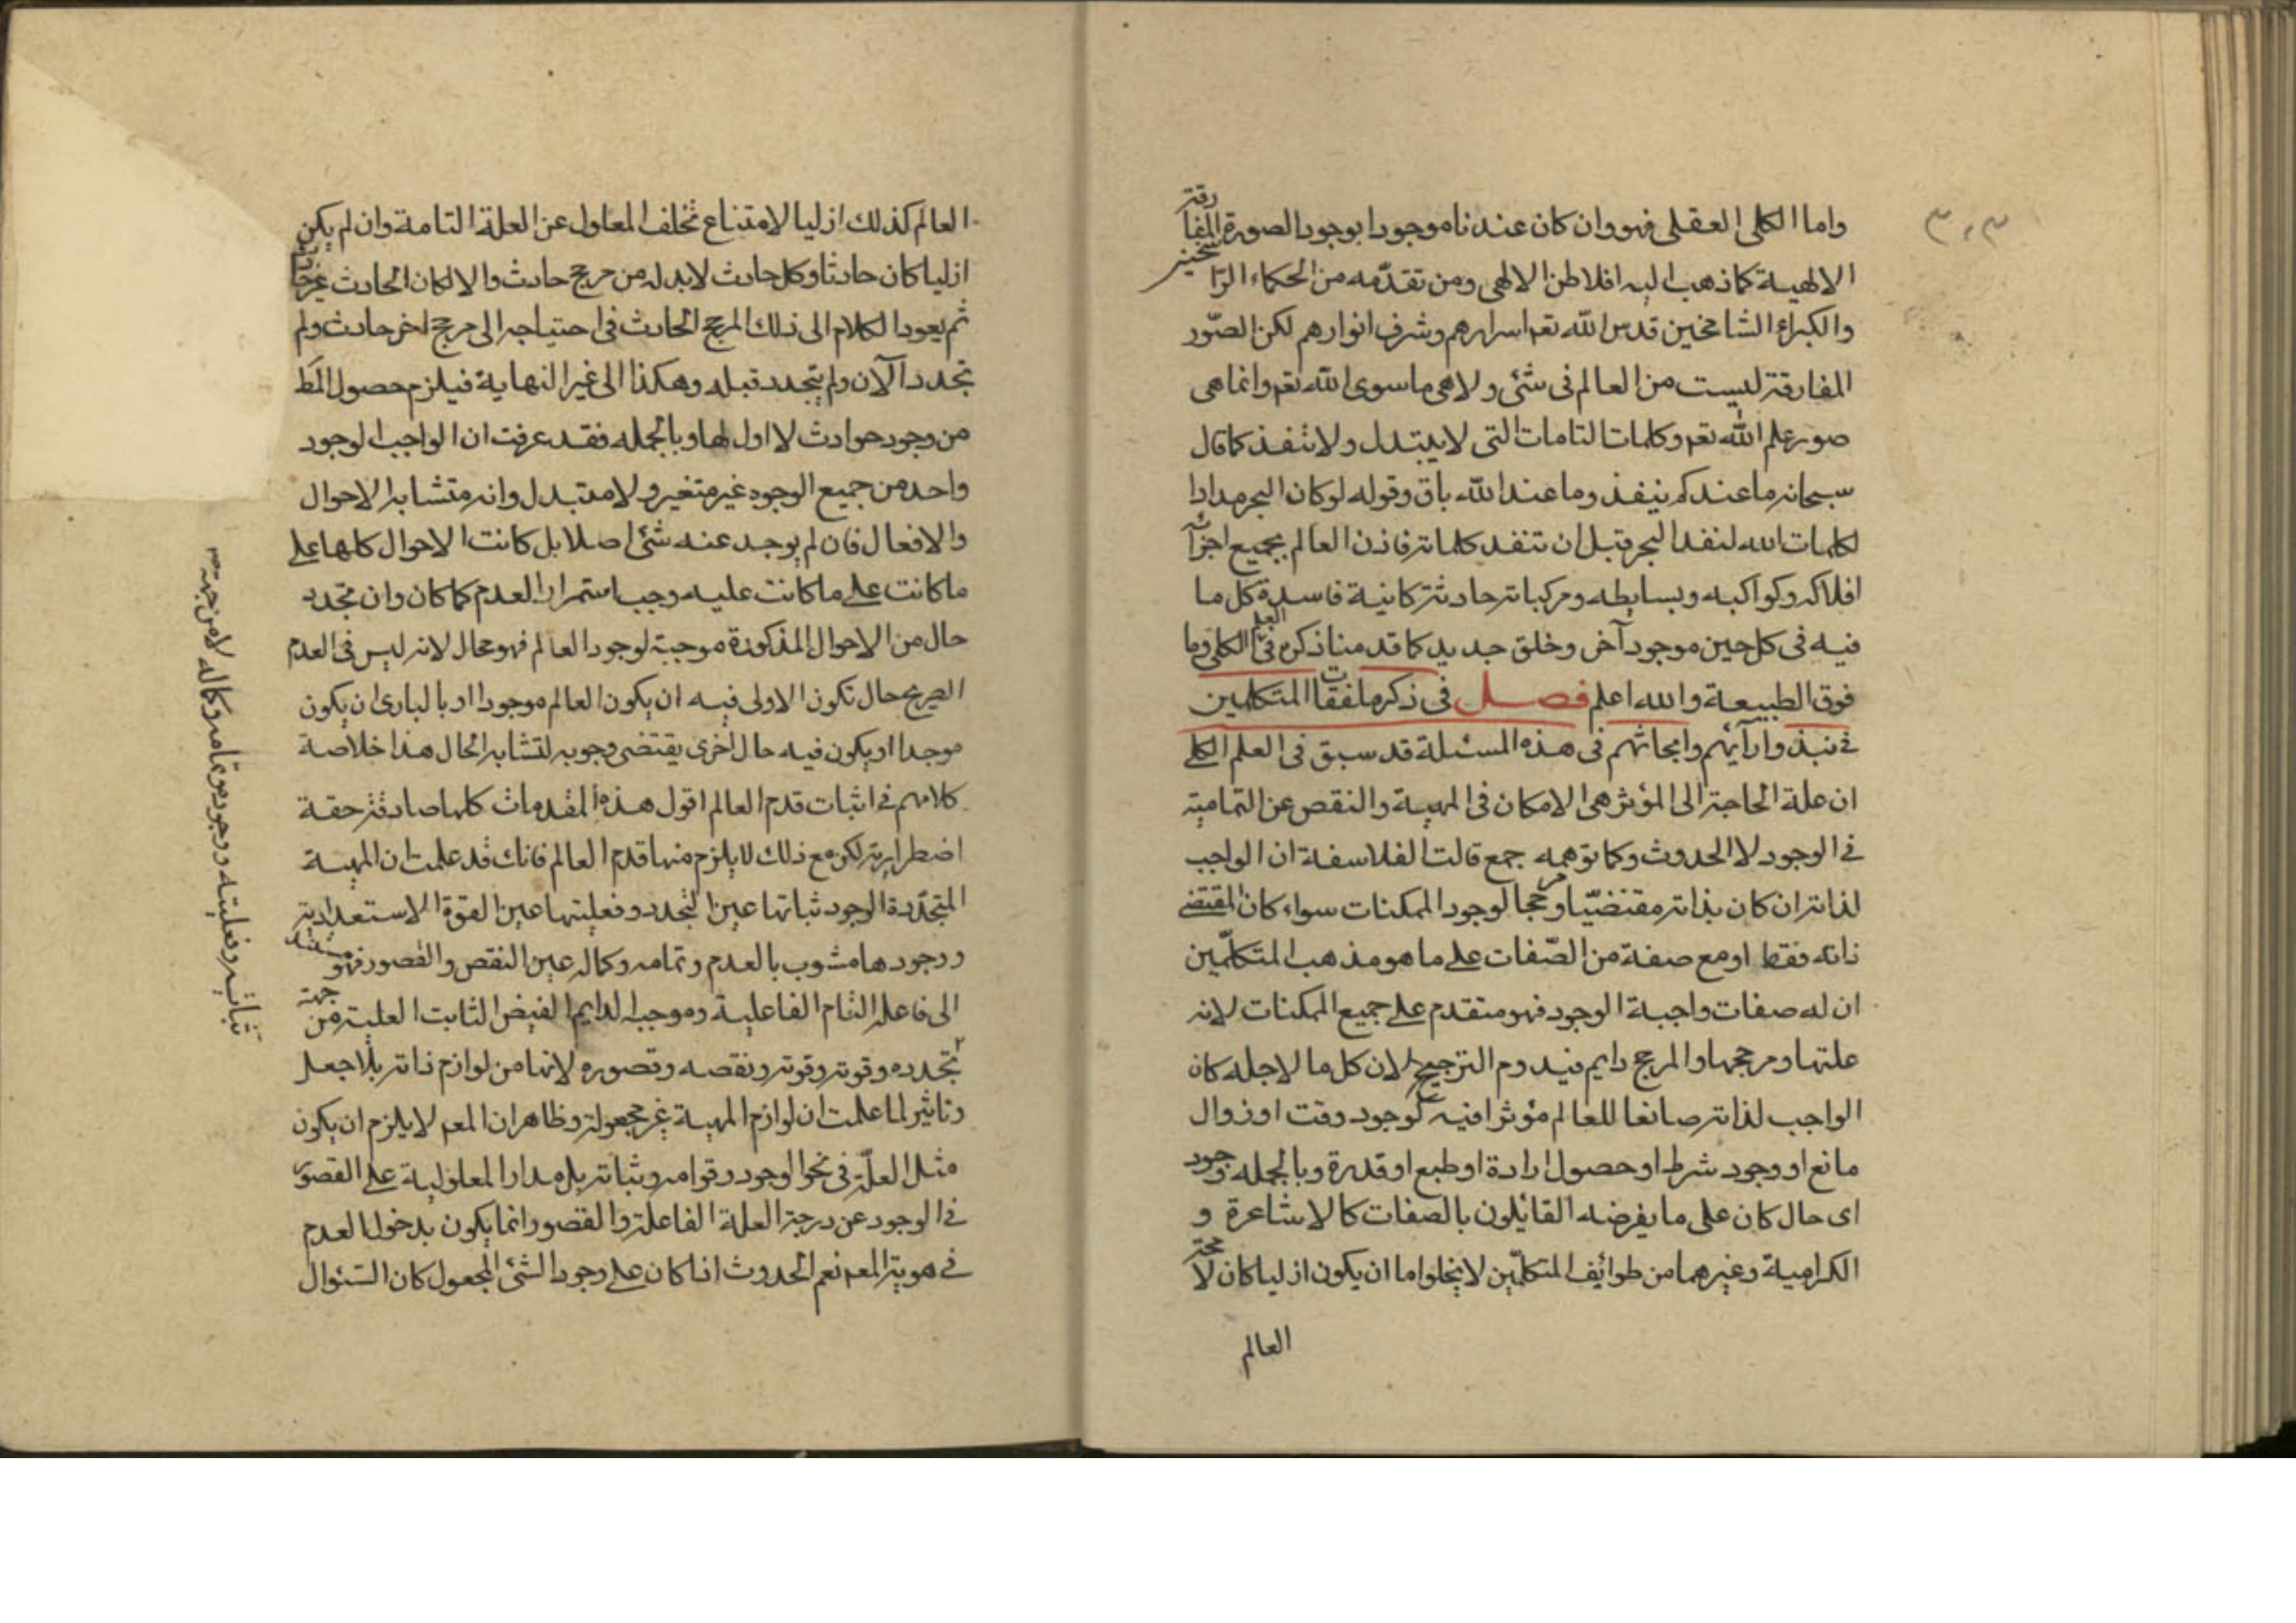 ٣٠٣
واما الكلى العقلى فهو وان كان عندنا موجودا بوجود الصورة المفارقة
الالهية كما ذهب اليه افلاطن الالهى ومن تقدّمه من الحكماء الراسخين
والكبراء الشامخين قدس الله تعم اسرارهم وشرف انوارهم لكن الصّور
المفارقة ليست من العالم فى شئ ولا هى ما سوى الله تعم وانما هى
صور علم الله تعم وكلمات التامات التى لا يبتدل ولا تنفذ كما قال
سبحانه ما عندكم ينفذ وما عند الله باق وقوله لو كان البحر مدادا
لكلمات الله لنفد البحر قبل ان تنفد كلماته فاذن العالم بجميع اجزائه
افلاكه وكواكبه وبسايطه ومركباته حادثة كاينة فاسدة كل ما
فيه فى كل حين موجود آخر وخلق جديد كما قد مناذكره فى العلم الكلى وما
فوق الطبيعة والله اعلم فصل فى ذكر ملفقات المتكلمين
فى نبذ وارآيئهم وابحاثهم فى هذه المسئلة قد سبق فى العلم الكلى
ان علة الحاجة الى المؤثر هى الامكان فى المهية والنقص عن التمامية
فى الوجود لا الحدوث وكما توهمه جمع قالت الفلاسفة ان الواجب
لذاته ان كان بذاته مقتضيّا ومرجحا لوجود الممكنات سواء كان المقتضى
ذاته فقط او مع صفة من الصّفات على ما هو مذهب المتكلّمين
ان له صفات واجبة الوجود فهو متقدم على جميع الممكنات لانه
علتها ومرجحها والمرجح دايم فيدوم الترجيح لان كل ما لاجله كان
الواجب لذاته صانعا للعالم مؤثرا فيه كوجود وقت او زوال
مانع او وجود شرط او حصول ارادة او طبع او قدرة وبالجمله وجود
اى حال كان على ما يفرضه القائلون بالصفات كالاشاعرة و
الكرامية وغيرهما من طوائف المتكلّمين لا يخلوا ما ان يكون ازليا كان لا محة
العالم
العالم كذلك ازليا لامتناع تخلف المعلول عن العلة التامة وان لم يكن
ازليا كان حادثا وكل حادث لا بد له من مرجح حادث والا لكان الحادث غير حادث
ثم يعود الكلام الى ذلك المرجح الحادث فى احتياجه الى مرجح اخر حادث ولم
تجدد الآن ولم يتجدد قبله وهكذا الى غير النهاية فيلزم حصول المط
من وجود حوادث لا اول لها وبالجمله فقد عرفت ان الواجب الوجود
واحد من جميع الوجوه غير متغير ولا متبدل وانه متشابه الاحوال
والافعال فان لم يوجد عنه شئ اصلا بل كانت الاحوال كلها على
ما كانت على ما كانت عليه وجب استمرار العدم كما كان وان تجدد
حال من الاحوال المذكورة موجبة لوجود العالم فهو محال لانه ليس فى العدم
الصريح حال تكون الاولى فيه ان يكون العالم موجودا او بالبارى ان يكون
موجدا او يكون فيه حال اخرى يقتضى وجوبه لتشابه الحال هذا خلاصة
كلامهم فى اثبات قدم العالم اقول هذه المقدمات كلها صادقة حقة
اضطرارية لكن مع ذلك لا يلزم منها قدم العالم فانك قد علمت ان المهية
المتجدّدة الوجود ثباتها عين التجدد وفعليتها عين القوة الاستعدادية
ووجودها مشوب بالعدم وتمامه وكماله عين النقص والقصور فهو مستند
الى فاعله التام الفاعلية وموجب الدايم الفيض الثابت العلية من جهة
تجدده وقوته وقوته ونقصه وقصوره لانها من لوازم ذاته بلا جعل
وتاثير لما علمت ان لوازم المهية غير مجعولة وظاهر ان المعم لا يلزم ان يكون
مثل العلّة فى نحو الوجود وقوامه وثباته بل مدار المعلولية على القصور
فى الوجود عن درجة العلة الفاعلة والقصور انما يكون بدخول العدم
فى هوية المعم نعم الحدوث اذا كان على وجود الشئ المجعول كان السّئوال
ثباته وفعليته ووجوده وتمامه وكماله لا من جهة